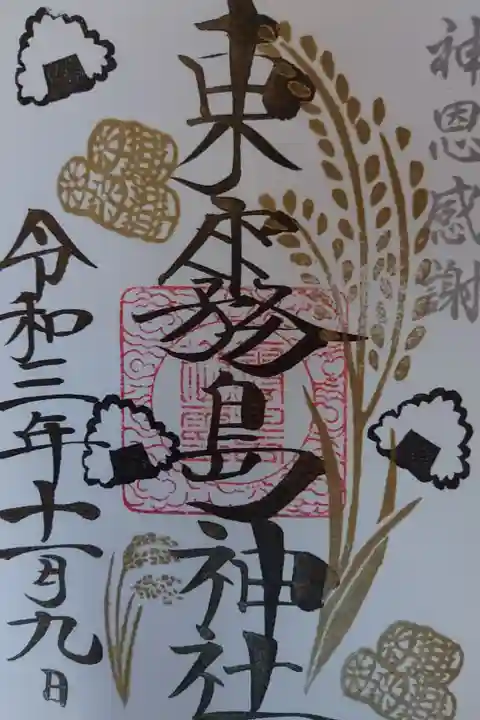 神恩感謝
東霧島神社
令和三年十一月九日